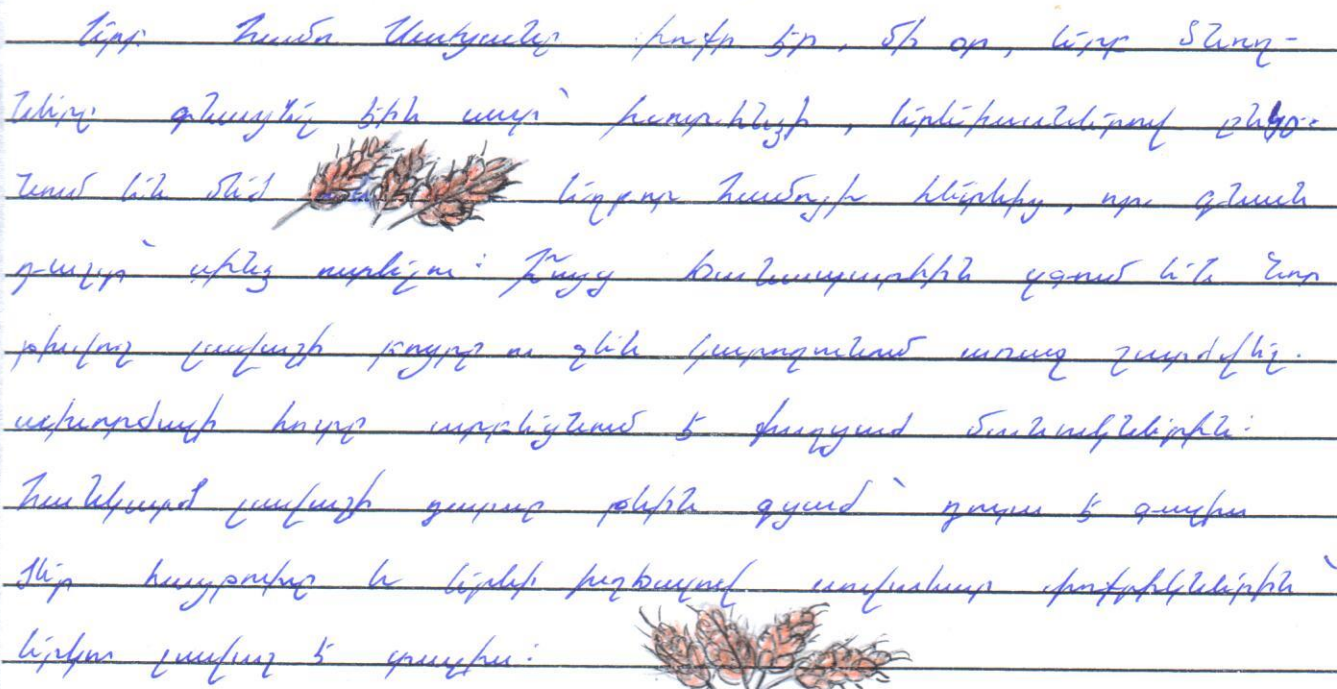 Երբ Համո Սահյանը փոքր էր, մի օր, երբ ծնող-
ները գնացել էին այգի՝ խաղողի, երեխաներով ընկ
նում են մեծ եղբոր Համոյի հետևից, որ գնան
դաշտ՝ սինձ ուտելու: Բայց ճանապարհին զգում են նոր
թխվող լավաշի բույրը ու չեն կարողանում առաջ շարժվել.
ախորժալի հոտը արբեցնում է քաղցած մանուկներին:
Հանկարծ լավաշի շարքը թևին գցած՝ դուրս է գալիս
մեր հացթուխը և երեք խղճալով սովահար փոքրիկներին՝
երկու լավաշ է տալիս: